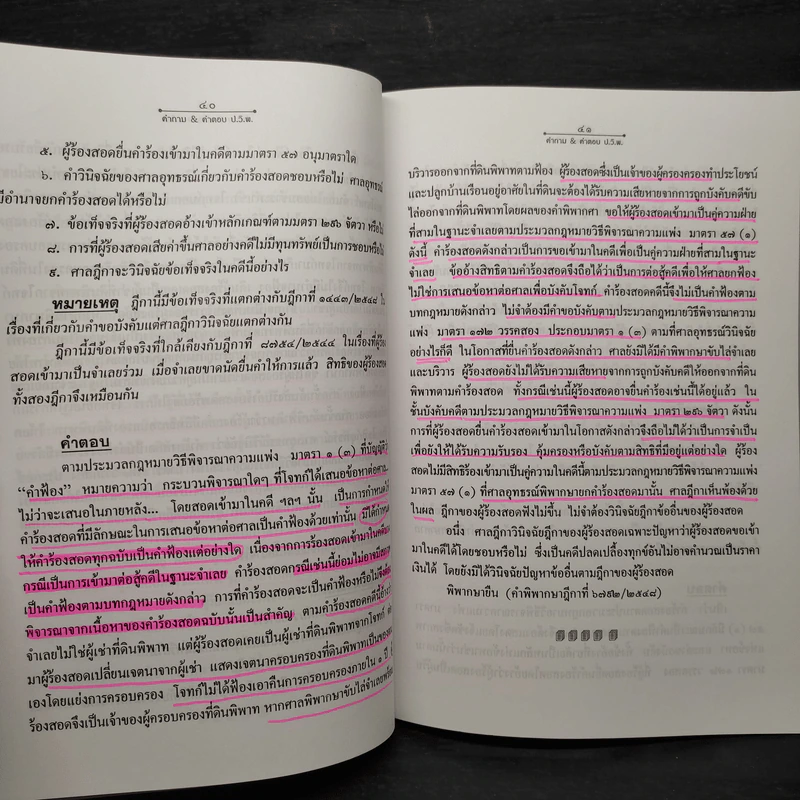 ๔๐
คำถาม & คำตอบ ป.วิ.พ.
๕. ผู้ร้องสอดยื่นคำร้องเข้ามาในคดีตามมาตรา ๕๗ อนุมาตราใด
๖. คำวินิจฉัยของศาลอุทธรณ์เกี่ยวกับคำร้องสอดชอบหรือไม่ ศาลอุทธรณ์
มีอำนาจยกคำร้องสอดได้หรือไม่
๗. ข้อเท็จจริงที่ผู้ร้องสอดอ้างเข้าหลักเกณฑ์ตามมตรา ๒๙๖ จัตวา หรือไม่
๘. การที่ผู้ร้องสอดเสียค่าขึ้นศาลอย่างคดีไม่มีทุนทรัพย์เป็นการชอบหรือไม่
๙. ศาลฎีกาจะวินิจฉัยข้อเท็จจริงในคดีนี้อย่างไร
หมายเหตุ ฎีกานี้มีข้อเท็จจริงที่แตกต่างกับฎีกาที่ ๑๔๔๓/๒๕๔๘ ใน
เรื่องที่เกี่ยวกับคำขอบังคับแต่ศาลฎีกาวินิจฉัยแตกต่างกัน
ฎีกานี้มีข้อเท็จจริงที่ใกล้เคียงกับฎีกาที่ ๘๗๕๔/๒๕๔๔ ในเรื่องที่ผู้ร้อง
สอดเข้ามาเป็นจำเลยร่วม เมื่อจำเลยขาดนัดยื่นคำให้การแล้ว สิทธิของผู้ร้องสอด
ทั้งสองฎีกาจึงเหมือนกัน
คำตอบ
ตามประมวลกฎหมายวิธีพิจารณาความแพ่ง มาตรา ๑ (๓) ที่บัญญัติว่า
“คำฟ้อง” หมายความว่า กระบวนพิจารณาใดๆ ที่โจทก์ได้เสนอข้อหาต่อศาล...
ไม่ว่าจะเสนอในภายหลัง... โดยสอดเข้ามาในคดี ฯลฯ นั้น เป็นการกำหนดให้
คำร้องสอดที่มีลักษณะในการเสนอข้อหาต่อศาลเป็นคำฟ้องด้วยเท่านั้น มิได้กำหนด
ให้คำร้องสอดทุกฉบับเป็นคำฟ้องแต่อย่างใด เนื่องจากการร้องสอดเข้ามาในคดี
กรณีเป็นการเข้ามาต่อสู้คดีในฐานะจำเลย คำร้องสอดกรณีเช่นนี้ย่อมไม่อาจ
เป็นคำฟ้องตามบทกฎหมายดังกล่าว การที่คำร้องสอดจะเป็นคำฟ้องหรือไม่จึงต้อง
พิจารณาจากเนื้อหาของคำร้องสอดฉบับนั้นเป็นสำคัญ ตามคำร้องสอดคดีนี้อ้างว่า
จำเลยไม่ใช่ผู้เช่าที่ดินพิพาท แต่ผู้ร้องสอดเคยเป็นผู้เช่าที่ดินพิพาทจากโจทก์
มาผู้ร้องสอดเปลี่ยนเจตนาจากผู้เช่า แสดงเจตนาครอบครองที่ดินพิพาทเป็นของ
เองโดยแย่งการครอบครอง โจทก์ไม่ได้ฟ้องเอาคืนการครอบครองภายใน ๑ ปี
ร้องสอดจึงเป็นเจ้าของผู้ครอบครองที่ดินพิพาท หากศาลพิพากษาขับไล่จำเลย
๔๑
คำถาม & คำตอบ ป.วิ.พ.
บริวารออกจากที่ดินพิพาทตามฟ้อง ผู้ร้องสอดซึ่งเป็นเจ้าของผู้ครองครองทำประโยชน์
และปลูกบ้านเรือนอยู่อาศัยในที่ดินจะต้องได้รับความเสียหายจากการถูกบังคับคดีขับ
ไล่ออกจากที่ดินพิพาทโดยผลของคำพิพากษา ขอให้ผู้ร้องสอดเข้ามาเป็นคู่ความฝ่าย
ที่สามในฐานะจำเลยตามประมวลกฎหมายวิธีพิจารณาความแพ่ง มาตรา ๕๗ (๑)
ดังนี้ คำร้องสอดดังกล่าวเป็นการขอเข้ามาในคดีเพื่อเป็นคู่ความฝ่ายที่สามในฐานะ
จำเลย ข้ออ้างสิทธิตามคำร้องสอดจึงถือได้ว่าเป็นการต่อสู้คดีเพื่อให้ศาลยกฟ้อง
ไม่ใช่การเสนอข้อหาต่อศาลเพื่อบังคับโจทก์ คำร้องสอดคดีนี้จึงไม่เป็นคำฟ้องตาม
บทกฎหมายดังกล่าว ไม่จำต้องมีคำขอบังคับตามประมวลกฎหมายวิธีพิจารณาความ
แพ่ง มาตรา ๑๗๒ วรรคสอง ประกอบมาตรา ๑ (๓) ตามที่ศาลอุทธรณ์วินิจฉัย
อย่างไรก็ดี ในโอกาสที่ยื่นคำร้องสอดดังกล่าว ศาลยังมิได้มีคำพิพากษาขับไล่จำเลย
และบริวาร ผู้ร้องสอดยังไม่ได้รับความเสียหายจากการถูกบังคับคดีให้ออกจากที่ดิน
พิพาทตามคำร้องสอด ทั้งกรณีเช่นนี้ผู้ร้องสอดอาจยื่นคำร้องเช่นนี้ได้อยู่แล้ว ใน
ชั้นบังคับคดีตามประมวลกฎหมายวิธีพิจารณาความแพ่ง มาตรา ๒๙๖ จัตวา ดังนั้น
การที่ผู้ร้องสอดยื่นคำร้องสอดเข้ามาในโอกาสดังกล่าวจึงถือไม่ได้ว่าเป็นการจำเป็น
เพื่อยังให้ได้รับความรับรอง คุ้มครองหรือบังคับตามสิทธิที่มีอยู่แต่อย่างใด ผู้ร้อง
สอดไม่มีสิทธิร้องเข้ามาเป็นคู่ความในคดีนี้ตามประมวลกฎหมายวิธีพิจารณาความแพ่ง
มาตรา ๕๗ (๑) ที่ศาลอุทธรณ์พิพากษายกคำร้องสอดมานั้น ศาลฎีกาเห็นพ้องด้วย
ในผล ฎีกาของผู้ร้องสอดฟังไม่ขึ้น ไม่จำต้องวินิจฉัยฎีกาข้ออื่นของผู้ร้องสอด
อนึ่ง ศาลฎีกาวินิจฉัยฎีกาของผู้ร้องสอดเฉพาะปัญหาว่าผู้ร้องสอดขอเข้า
มาในคดีนี้ได้โดยชอบหรือไม่ ซึ่งเป็นคดีปลดเปลื้องทุกข์อันไม่อาจคำนวณเป็นราคา
เงินได้ โดยยังมิได้วินิจฉัยปัญหาข้ออื่นตามฎีกาของผู้ร้องสอด
พิพากษายืน (คำพิพากษาฎีกาที่ ๖๗๙๒/๒๕๔๘)